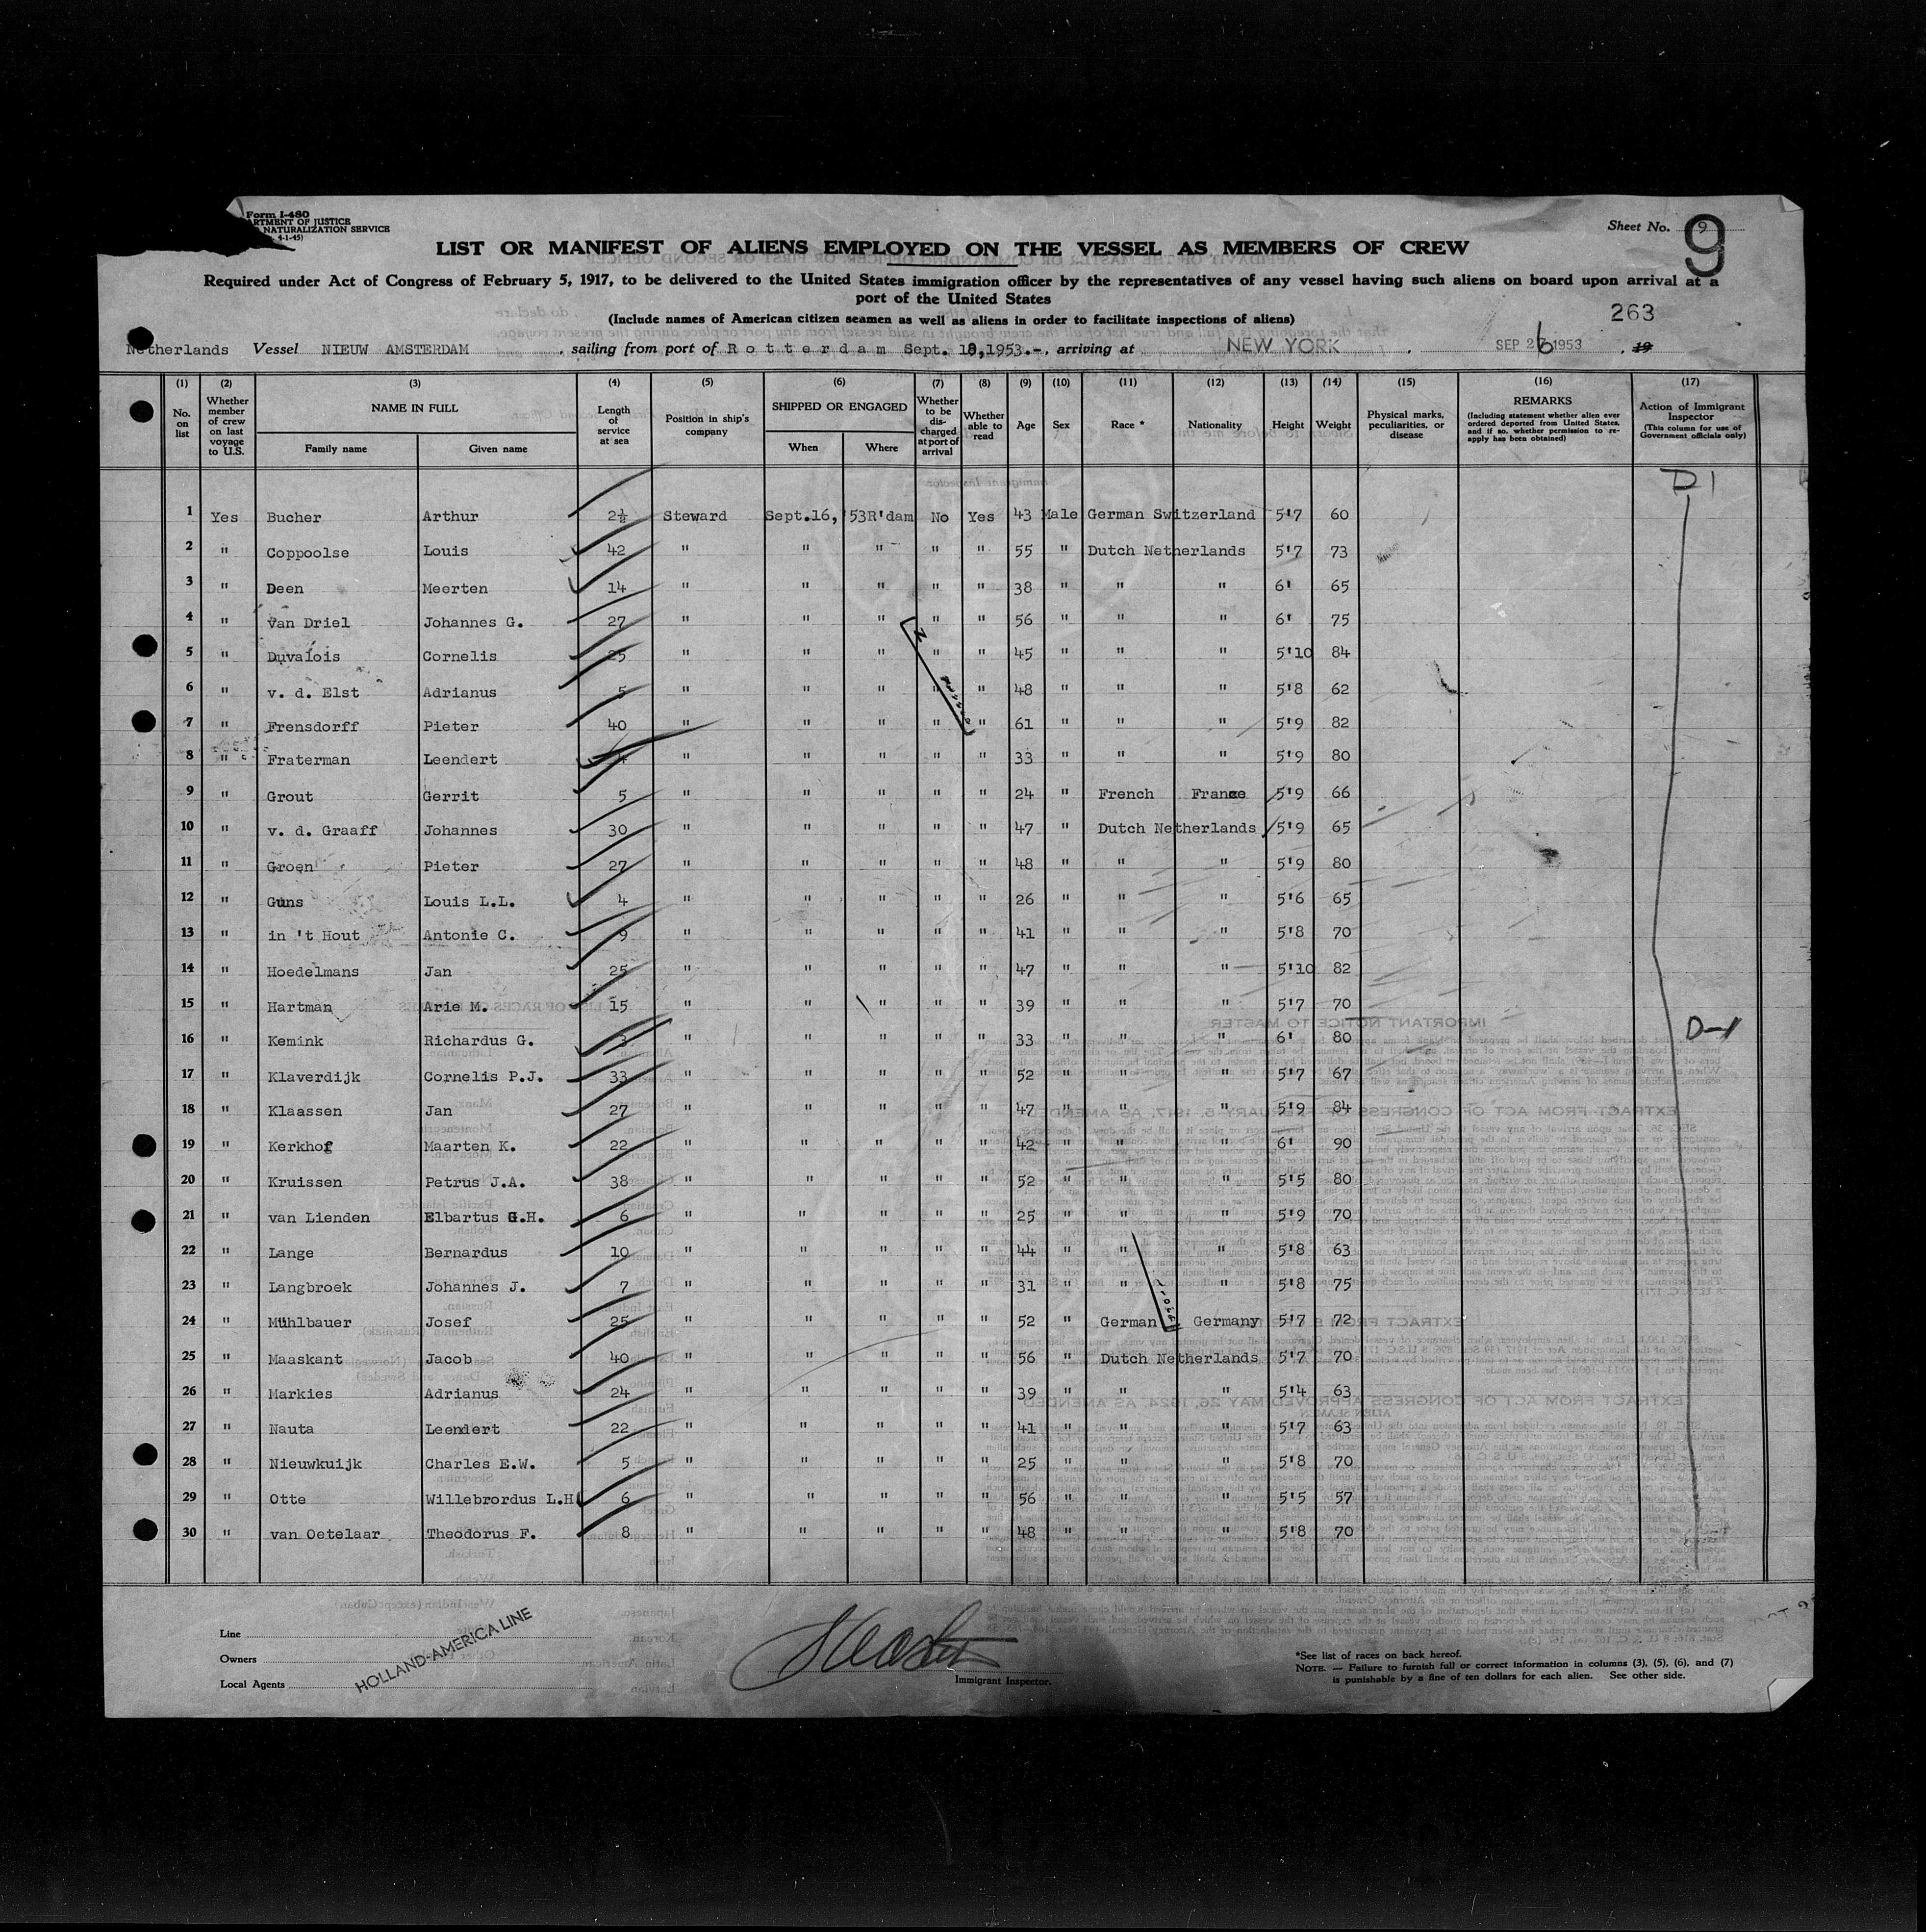 Form I-480
ARTMENT OF JUSTICE
NATURALIZATION SERVICE
4-1-45)
Sheet No. 9
9
LIST OR MANIFEST OF ALIENS EMPLOYED ON THE VESSEL AS MEMBERS OF CREW
Required under Act of Congress of February 5, 1917, to be delivered to the United States immigration officer by the representatives of any vessel having such aliens on board upon arrival at a
port of the United States
(Include names of American citizen seamen as well as aliens in order to facilitate inspections of aliens)
263
Netherlands Vessel NIEUW AMSTERDAM, sailing from port of Rotterdam Sept. 18, 1953.-, arriving at NEW YORK, SEP 26 1953, 19
(1) (2) (3) (4) (5) (6) (7) (8) (9) (10) (11) (12) (13) (14) (15) (16) (17)
No. on list
Whether member of crew on last voyage to U.S.
NAME IN FULL
Family name
Given name
Length of service at sea
Position in ship's company
SHIPPED OR ENGAGED
When
Where
Whether to be discharged at port of arrival
Whether able to read
Age
Sex
Race *
Nationality
Height
Weight
Physical marks, peculiarities, or disease
REMARKS
(Including statement whether alien ever ordered deported from United States, and if so, whether permission to re-apply has been obtained)
Action of Immigrant Inspector
(This column for use of Government officials only)
D1
1 Yes Bucher Arthur 2½ Steward Sept.16, '53 R'dam No Yes 43 Male German Switzerland 5'7 60
2 " Coppoolse Louis 42 " " " " " 55 " Dutch Netherlands 5'7 73
3 " Deen Meerten 14 " " " " " 38 " " " 6' 65
4 " van Driel Johannes G. 27 " " " " " 56 " " " 6' 75
5 " Duvalois Cornelis 25 " " " " " 45 " " " 5'10 84
6 " v. d. Elst Adrianus 5 " " " " " 48 " " " 5'8 62
7 " Frensdorff Pieter 40 " " " " " 61 " " " 5'9 82
8 " Fraterman Leendert 4 " " " " " 33 " " " 5'9 80
9 " Grout Gerrit 5 " " " " " 24 " French France 5'9 66
10 " v. d. Graaff Johannes 30 " " " " " 47 " Dutch Netherlands 5'9 65
11 " Groen Pieter 27 " " " " " 48 " " " 5'9 80
12 " Guns Louis L.L. 4 " " " " " 26 " " " 5'6 65
13 " in 't Hout Antonie C. 9 " " " " " 41 " " " 5'8 70
14 " Hoedelmans Jan 25 " " " " " 47 " " " 5'10 82
15 " Hartman Arie M. 15 " " " " " 39 " " " 5'7 70
16 " Kemink Richardus G. 3 " " " " " 33 " " " 6' 80 D-1
17 " Klaverdijk Cornelis P.J. 33 " " " " " 52 " " " 5'7 67
18 " Klaassen Jan 27 " " " " " 47 " " " 5'9 84
19 " Kerkhof Maarten K. 22 " " " " " 42 " " " 6' 90
20 " Kruissen Petrus J.A. 38 " " " " " 52 " " " 5'5 80
21 " van Lienden Elbartus G.H. 6 " " " " " 25 " " " 5'9 70
22 " Lange Bernardus 10 " " " " " 44 " " " 5'8 63
23 " Langbroek Johannes J. 7 " " " " " 31 " " " 5'8 75
24 " Mühlbauer Josef 25 " " " " " 52 " German Germany 5'7 72
25 " Maaskant Jacob 40 " " " " " 56 " Dutch Netherlands 5'7 70
26 " Markies Adrianus 24 " " " " " 39 " " " 5'4 63
27 " Nauta Leendert 22 " " " " " 41 " " " 5'7 63
28 " Nieuwkuijk Charles E.W. 5 " " " " " 25 " " " 5'8 70
29 " Otte Willebrordus L.H 6 " " " " " 56 " " " 5'5 57
30 " van Oetelaar Theodorus F. 8 " " " " " 48 " " " 5'8 70
Line
Owners
Local Agents
HOLLAND-AMERICA LINE
Immigrant Inspector.
*See list of races on back hereof.
NOTE. — Failure to furnish full or correct information in columns (3), (5), (6), and (7)
is punishable by a fine of ten dollars for each alien. See other side.